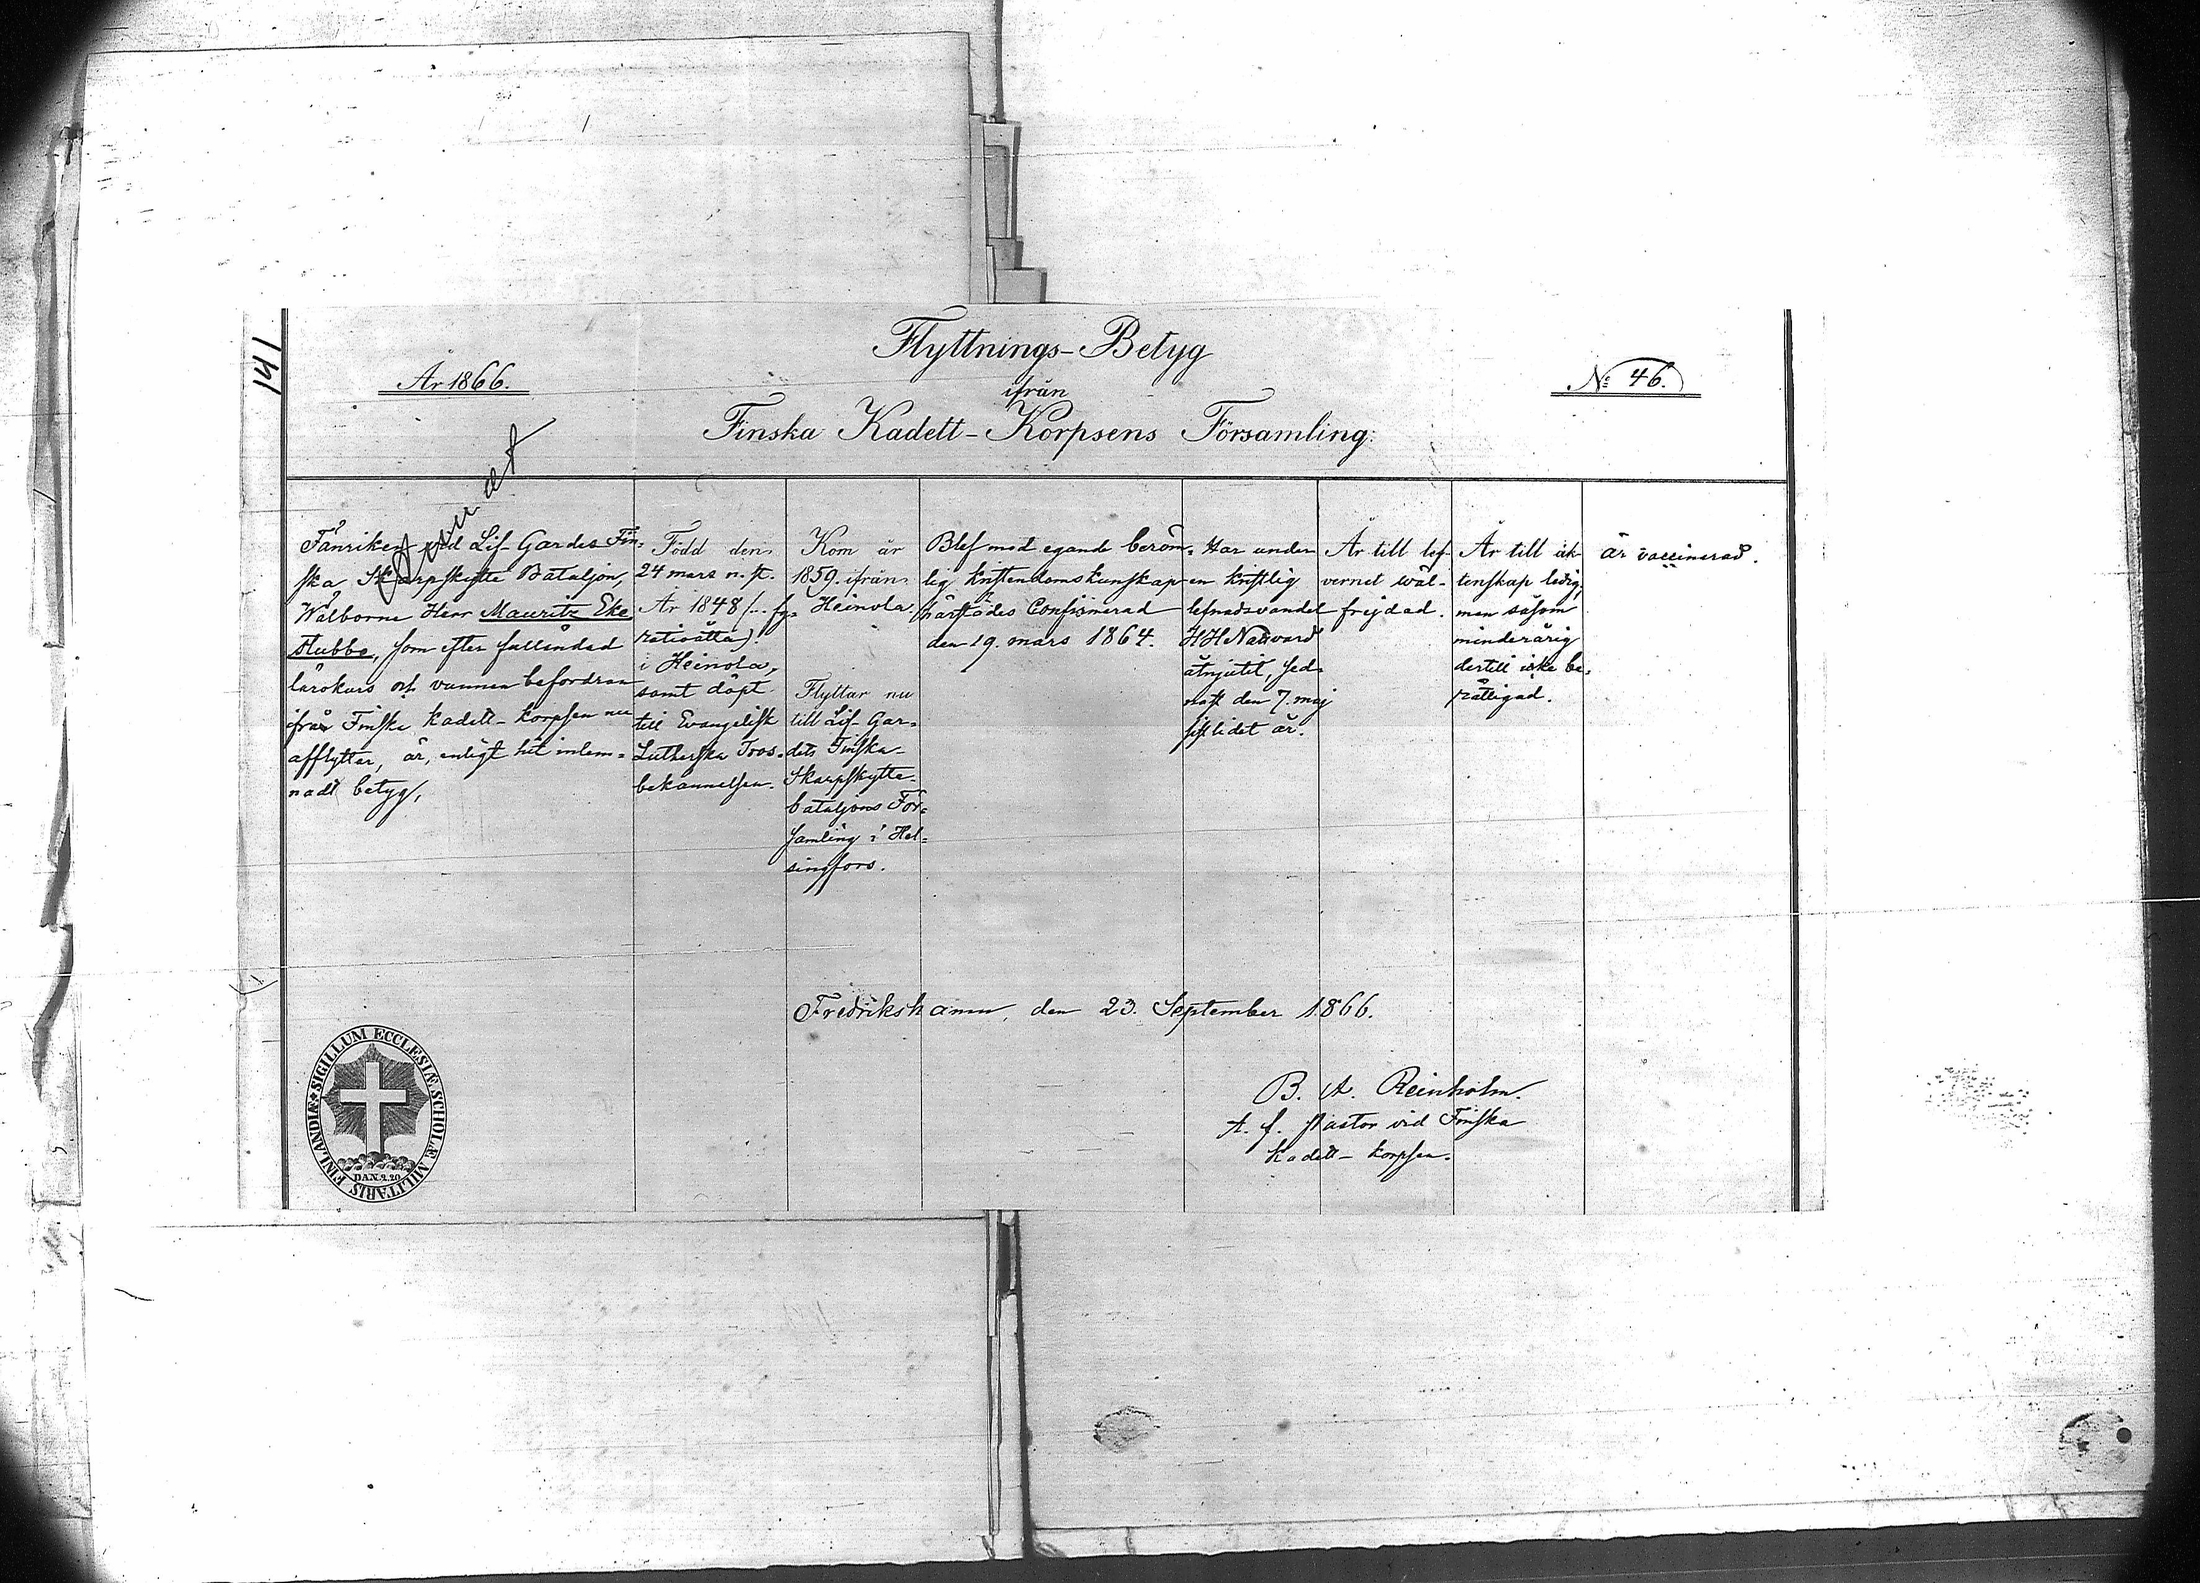 141
Flyttnings-Betyg
År 1866.
N: 46.
ifrån
Finska Kadett-Korpsens Församling.
Fänriken vid Lif-Gardes Fin-
ska Skarpskytte Bataljon,
Wälborne Herr Mauritz Eke
Stubbe, som efter fulländad
lärokurs och vunnen befordran
ifrån Finska kadett-korpsen nu
afflyttar, är, enligt hit inlem-
nadt betyg,
Född den
24 mars n. st.
År 1848 (... fyr-
ratioåtta)
i Heinola,
samt döpt
till Evangelisk
Lutherska Tros-
bekännelsen.
Kom år
1859. ifrån
Heinola.
Flyttar nu
till Lif-Gar-
dets Finska
Skarpskytte-
bataljons För-
samling i Hel-
singfors.
Blef med egande beröm-
lig kristendomskunskap
härstädes Confirmerad
den 19. mars 1864.
Har under
en kristlig
lefnadsvandel
HH Nattvard
åtnjutit, sed-
nast den 7. maj
sistlidet år.
Är till lef-
vernet wäl-
frejdad.
Är till äk-
tenskap ledig,
men såsom
minderårig
dertill icke be-
rättigad.
är vaccinerad.
Fredrikshamn, den 23. September 1866.
B. A. Reinholm.
t. f. Pastor vid Finska
kadett-korpsen.
SIGILLUM ECCLESIÆ SCHOLÆ MILITARIS FINLANDIÆ
DAN. 2.20